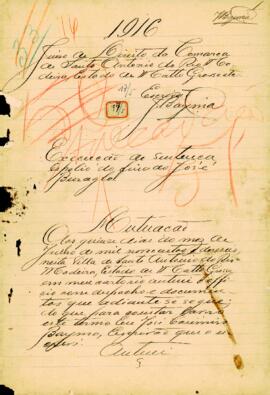 1916
Juizo de Direito da Comarca
de Santo Antonio do Rio M
deira, Estado de Matto Grosso
Escrivão
Bayma
Execução de sentença
Espolio do finado José
Autuação
Aos quinze dias do mez de
Julho de mil novecentos e deseseis
nesta Villa de Santo Antonio do Rio
Madeira, Estado de Matto Grosso
em meu cartorio autuei o offi
cio com despacho e documen
tos que adiante se segue
do que para constar lavro
este termo. Eu José
Bayma, Escrivão que o es
crevi.
Autuei